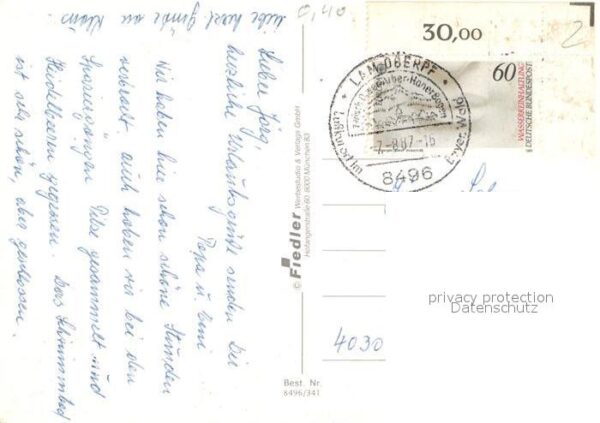 Liebe herzl. Grüße an Klaus
Lieber Jörg,
herzliche Urlaubsgrüße senden Dir
Papa u.
Wir haben hier schon schöne Stunden
verbracht auch haben wir bei den
Spaziergängen Pilze gesammelt und
Heidelbeeren gegessen. Das Schwimmbad
ist sehr schön, aber geschlossen.
© Fiedler Werbestudio & Verlags GmbH
8000 München 83
Best. Nr.
8496/341
0,40
30,00
2
60
WASSERREINHALTUNG
DEUTSCHE BUNDESPOST
LAM, OBERPF
Luftkurort im Bayer. Wald
-7.-8.87-16
8496
4030
privacy protection
Datenschutz